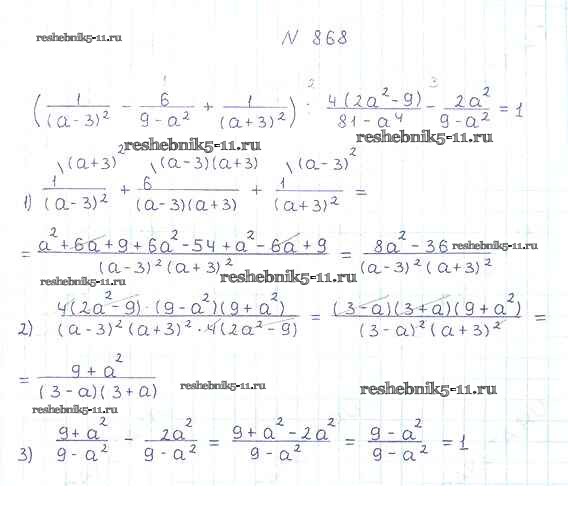 reshebnik5-11.ru
N 868
1 2 3
(1/(a-3)² - 6/(9-a²) + 1/(a+3)²) : 4(2a²-9)/(81-a⁴) - 2a²/(9-a²) = 1
reshebnik5-11.ru
\(a+3)² \(a-3)(a+3) \(a-3)²
1) 1/(a-3)² + 6/((a-3)(a+3)) + 1/(a+3)² =
= (a²+6a+9+6a²-54+a²-6a+9)/((a-3)²(a+3)²) = (8a²-36)/((a-3)²(a+3)²)
reshebnik5-11.ru
reshebnik5-11.ru
reshebnik5-11.ru
2) (4(2a²-9)·(9-a²)(9+a²))/((a-3)²(a+3)²·4(2a²-9)) = ((3-a)(3+a)(9+a²))/((3-a)²(a+3)²) =
= (9+a²)/((3-a)(3+a))
reshebnik5-11.ru
reshebnik5-11.ru
reshebnik5-11.ru
3) (9+a²)/(9-a²) - 2a²/(9-a²) = (9+a²-2a²)/(9-a²) = (9-a²)/(9-a²) = 1